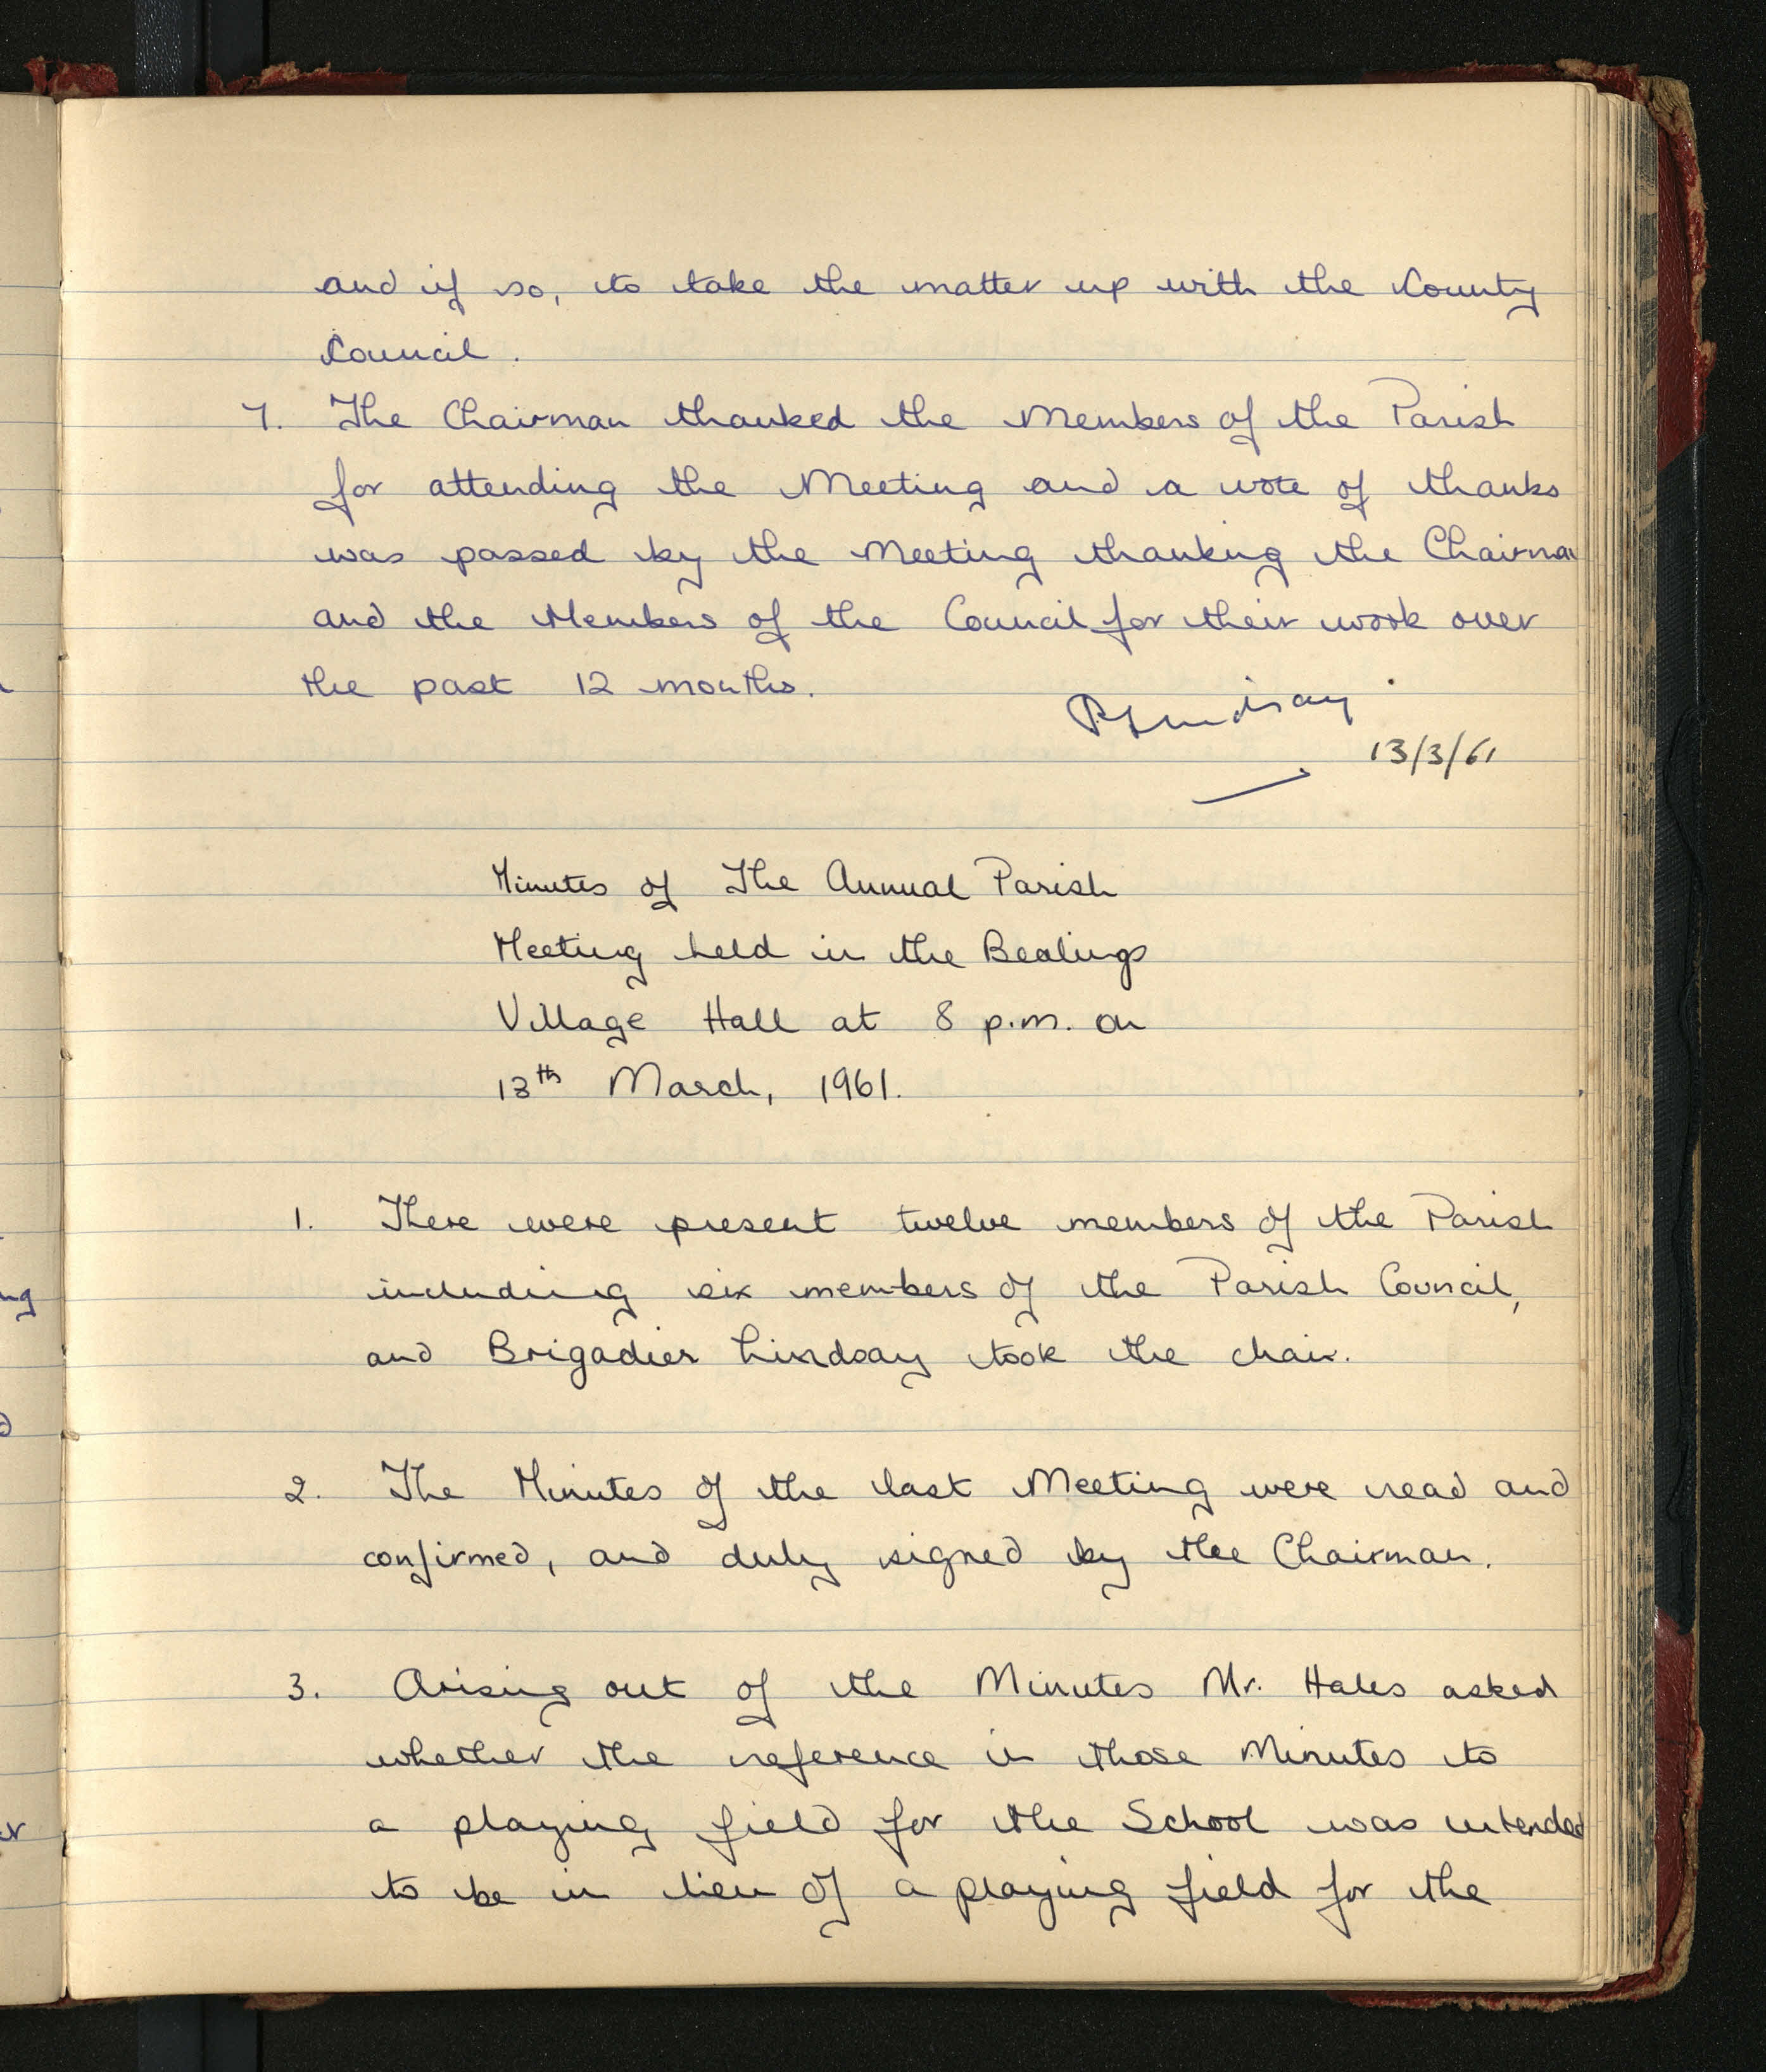 and if so, to take the matter up with the County
Council.
7. The Chairman thanked the Members of the Parish
for attending the Meeting and a vote of thanks
was passed by the Meeting thanking the Chairman
and the Members of the Council for their work over
the past 12 months.
Lindsay
13/3/61
Minutes of The Annual Parish
Meeting held in the Bealings
Village Hall at 8 p.m. on
13th March, 1961.
1. There were present twelve members of the Parish
including six members of the Parish Council,
and Brigadier Lindsay took the chair.
2. The Minutes of the last Meeting were read and
confirmed, and duly signed by the Chairman.
3. Arising out of the Minutes Mr. Hales asked
whether the reference in those Minutes to
a playing field for the School was intended
to be in lieu of a playing field for the